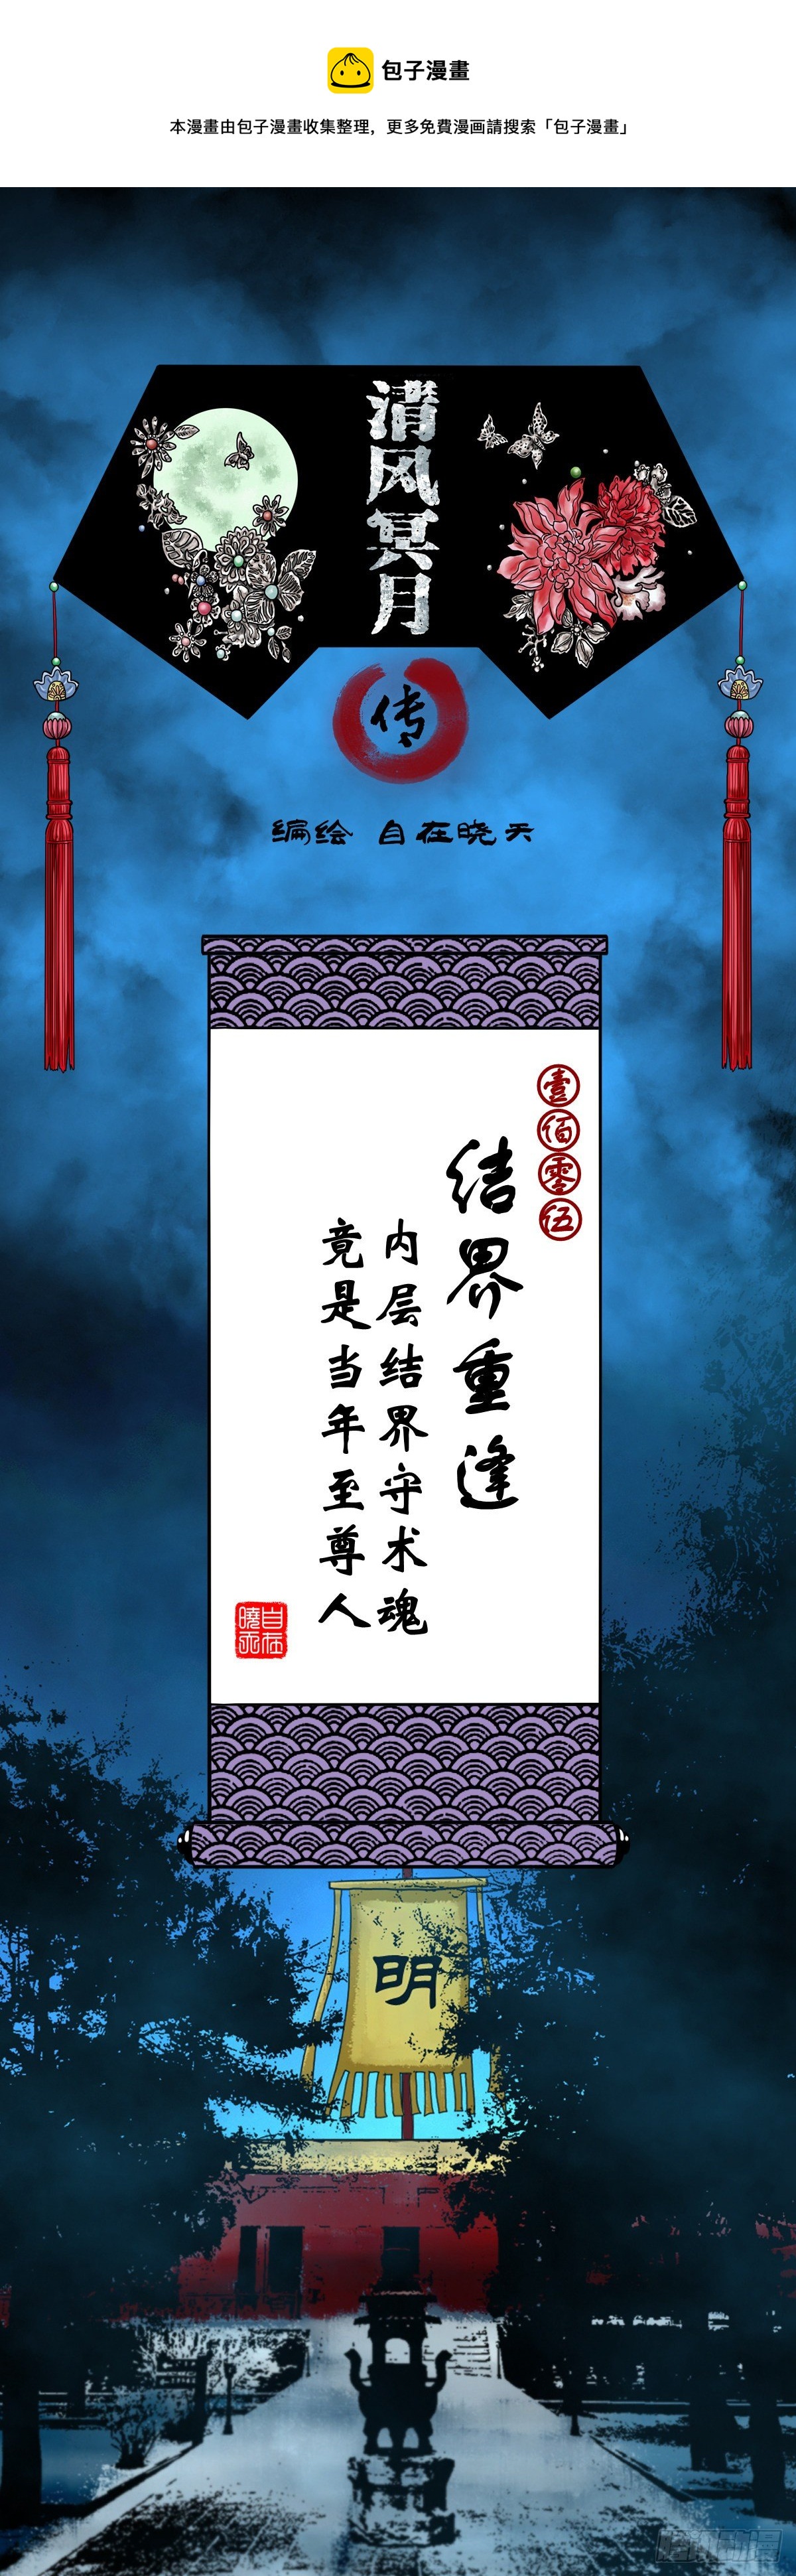 包子漫畫
本漫畫由包子漫畫收集整理，更多免費漫画請搜索「包子漫畫」
清风冥月
传
编绘 自在晓天
壹佰零伍
结界重逢
内层结界守术魂
竟是当年至尊人
自在
曉天
明
腾讯动漫